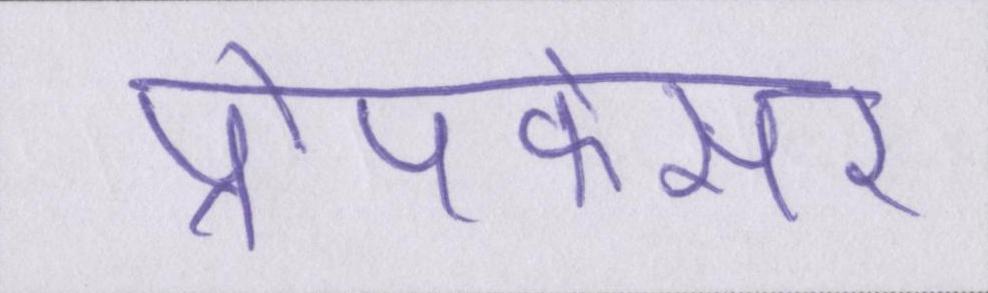 प्रोपकेसर